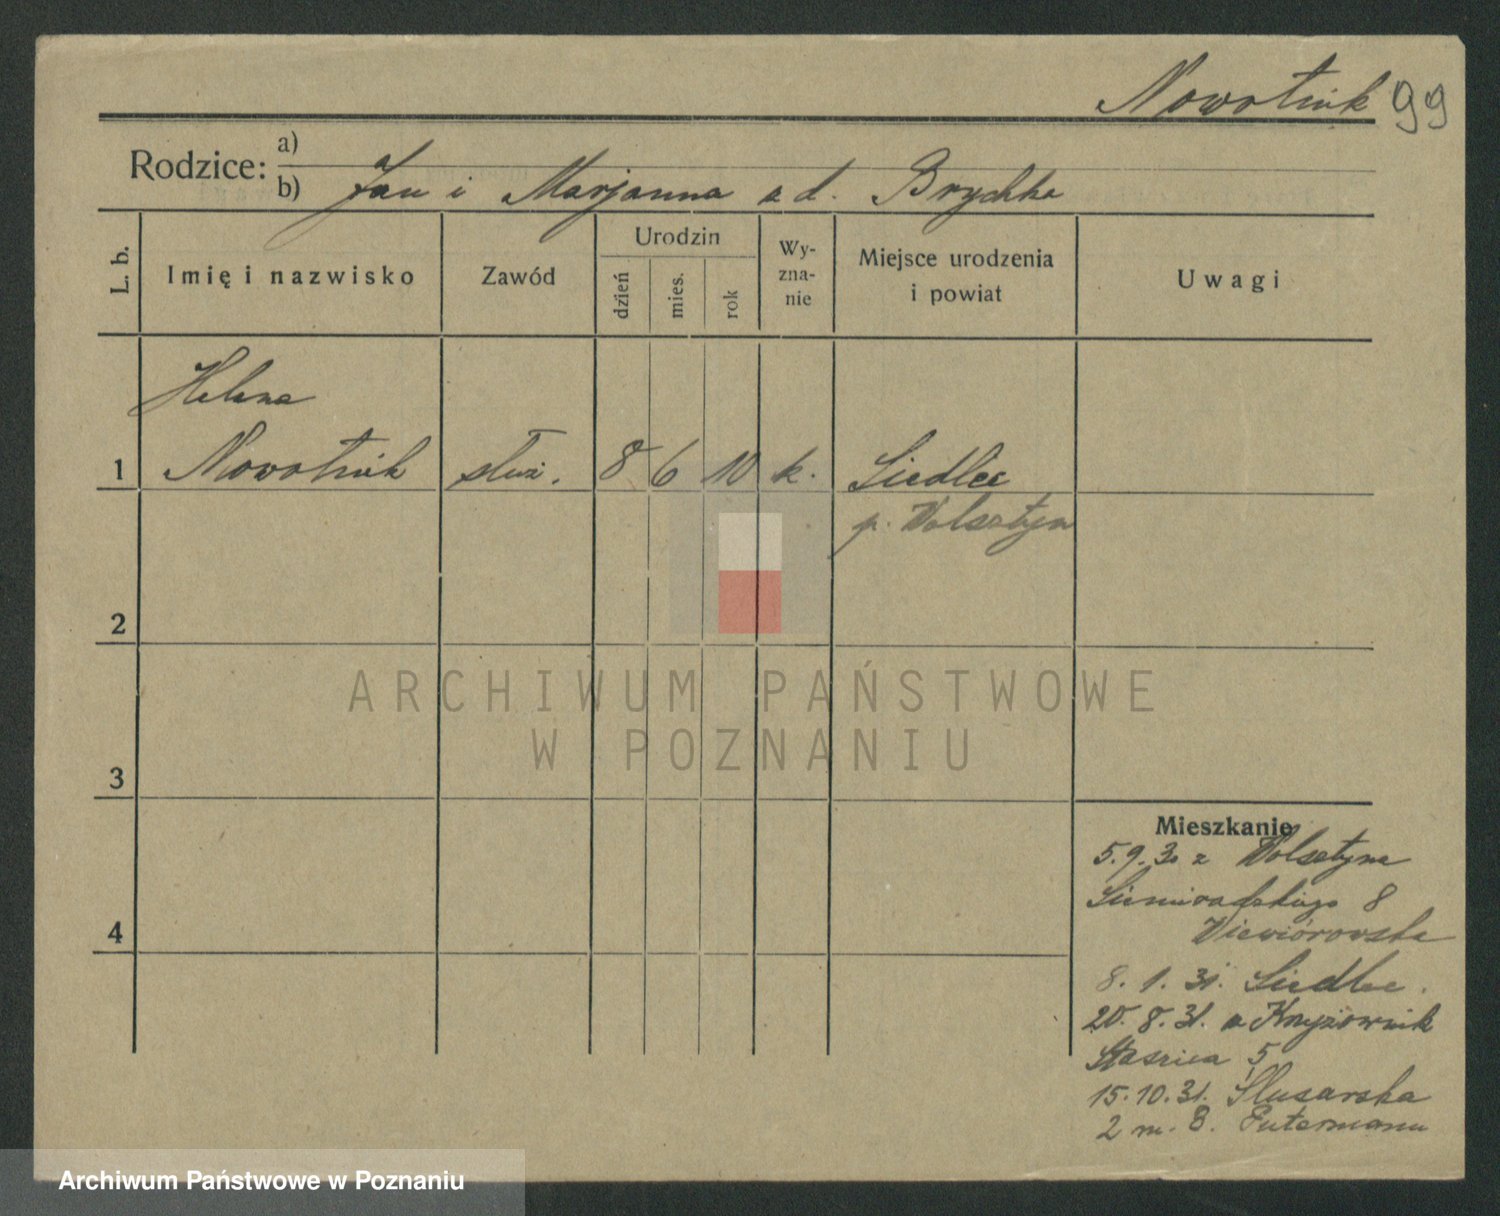 Nowotnik 99
Rodzice: a)
b) Jan i Marjanna z d. Brychka
L. b.
Imię i nazwisko
Zawód
Urodzin
dzień
mies.
rok
Wy-
zna-
nie
Miejsce urodzenia
i powiat
Uwagi
Helena
1 Nowotnik służ. 8 6 10 k. Siedlec
p. Wolsztyn
2
ARCHIWUM PAŃSTWOWE
W POZNANIU
3
Mieszkanie
5.9.30 z Wolsztyna
Siemiradzkiego 8
Wiewiórowska
4
8.1.31. Siedlec.
20.8.31. z Krzyżownik
Staszica 5
15.10.31. Ślusarska
2 m. 8.
Archiwum Państwowe w Poznaniu